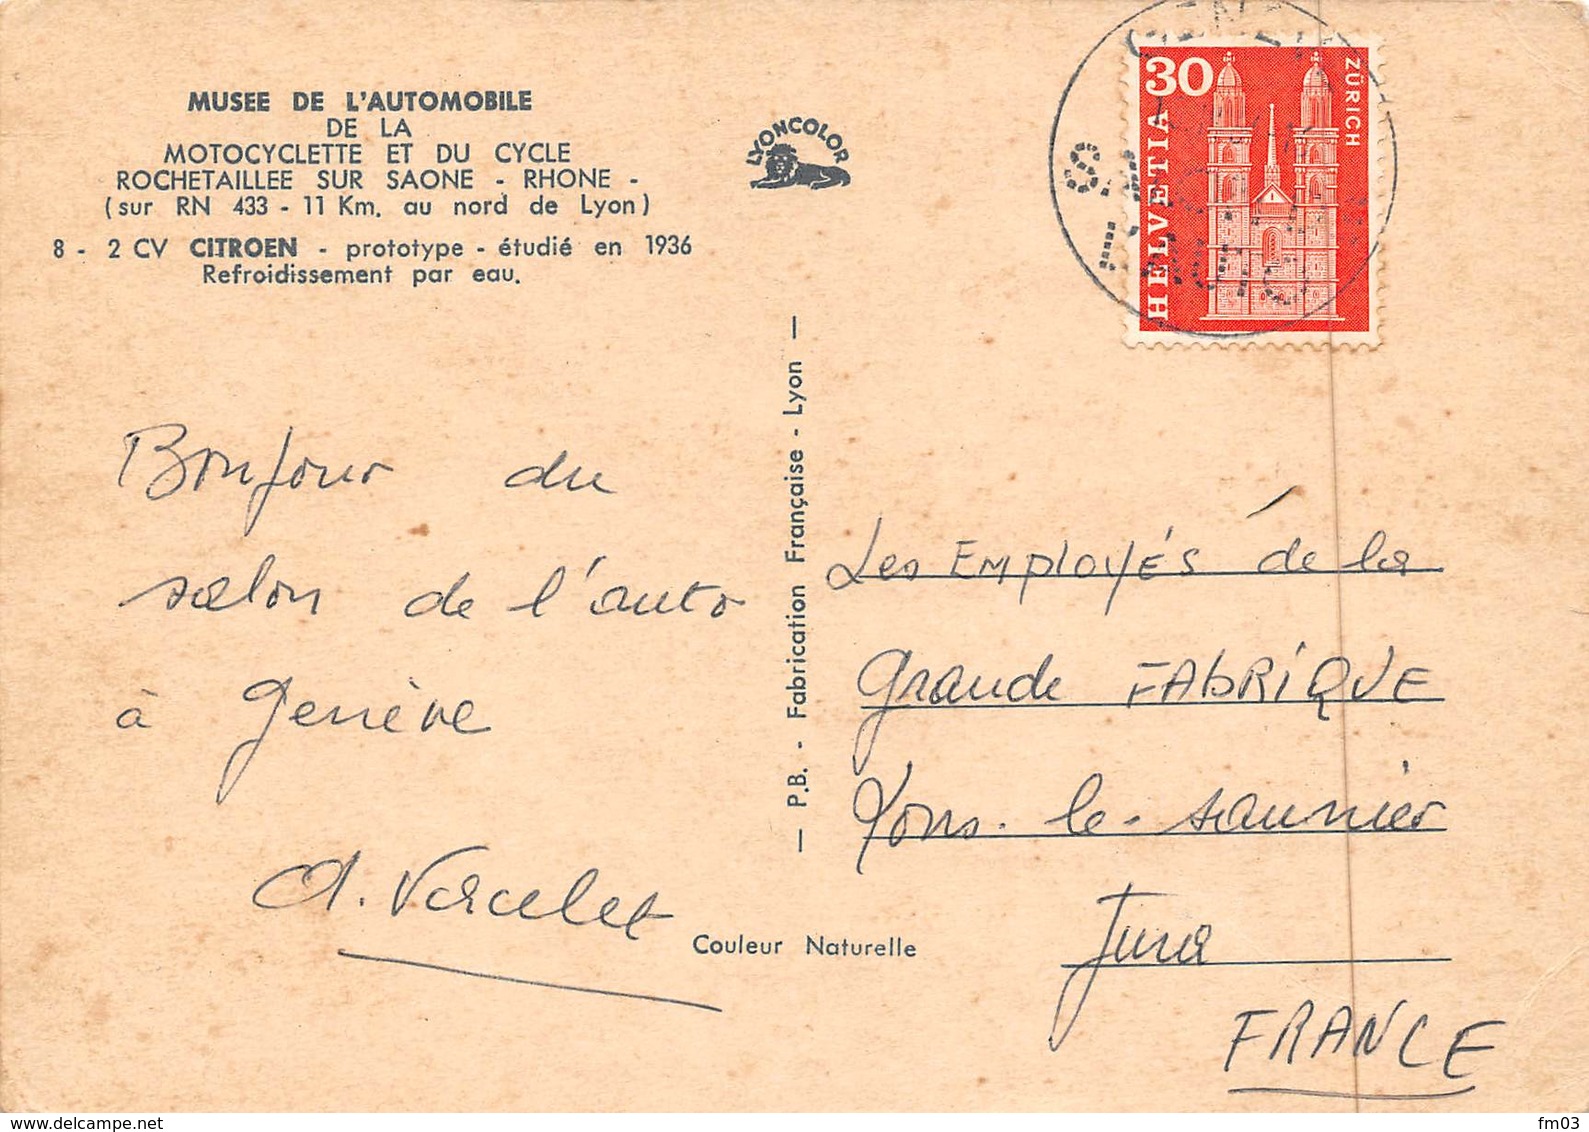 MUSEE DE L'AUTOMOBILE
DE LA
MOTOCYCLETTE ET DU CYCLE
ROCHETAILLEE SUR SAONE - RHONE -
(sur RN 433 - 11 Km. au nord de Lyon)
8 - 2 CV CITROEN - prototype - étudié en 1936
Refroidissement par eau.
LYONCOLOR
30
ZÜRICH
HELVETIA
Bonjour du
salon de l'auto
à Genève
— P.B. - Fabrication Française - Lyon —
Couleur Naturelle
Les Employés de la
Grande FABRIQUE
Lons-le-saunier
Jura
FRANCE
delcampe.net
fm03